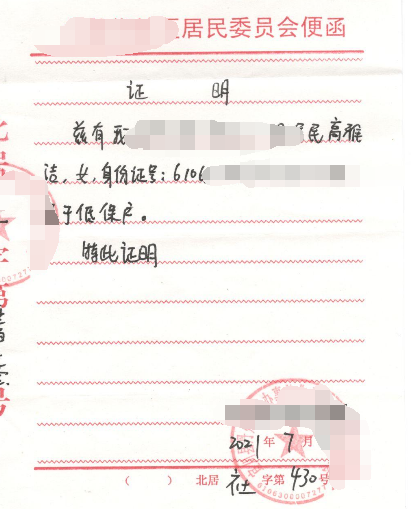 居民委员会便函
证 明
兹有我 民高雅
洁,女,身份证号:6106
于低保户。
特此证明
2021年7月
( ) 北居 社 字第430号